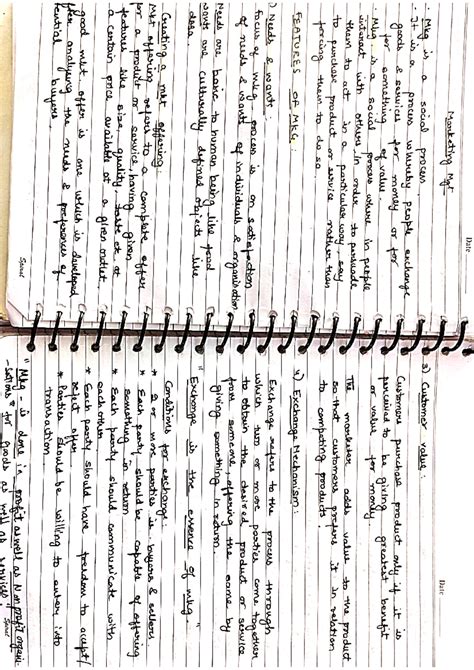 Date
Marketing Mgt
. Mkg is a social process
. It is a process whereby people exchange
goods & services for money or for
for something of value.
. Mkg is a social process where in people
interact with others, in order to persuade
them to act in a particular way, say
to purchase product or service rather than
forcing them to do so
FEATURES OF MKG.
1) Needs & want:
focus of mkg process is on satisfaction
of needs & want of individuals & organisation
Needs are basic to human being like food
wants are culturally defined objects like
dosa.
Creating a mkt offering:
Mkt offering refers to a complete offer
for a product or service, having given
features like size, quality, taste et at
a certain price available at a given outlet.
good mkt offer is one which is developed
after analysing the needs & preferences of
potential buyers
Spiral
Date
3) Customer value:
Customers purchase product only if it is
perceived to be giving greatest benefit
or value for money
The marketer adds value to the product
so that customers prefers it in relation
to competing products.
4) Exchange Mechanism:
Exchange refers to the process through
which two or more parties come together
to obtain the desired product or service
from someone, offering the same by
giving something in return.
"Exchange is the essence of mkg"
Conditions for exchange:
* 2 or more parties ie buyers & sellers
* Each party should be capable of offering
something in return
* Each party should communicate with
each other
* Each party should have freedom to accept/
reject offer
* Parties should be willing to enter into
transaction.
"Mkg - is done in profit as well as Non profit organi
-sations & for goods as well as services"
Spiral